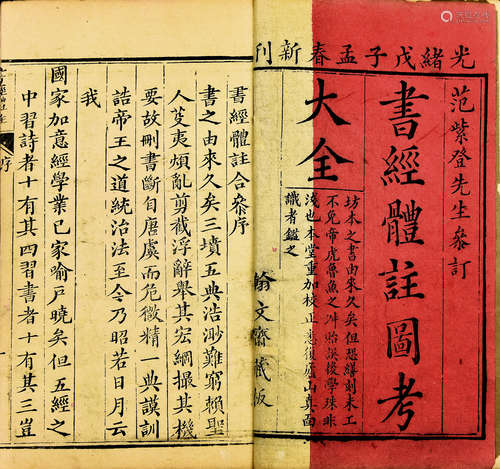 光緒戊子孟春新刊
范紫登先生參訂
書經體註圖考
大全
坊本之書由來久矣但想繕刻未工
不免帝虎魯魚之舛貽誤後學殊非
淺也本堂重加校正悉復廬山真面
識者鑑之
翰文齋藏板
書經體註合參序
書之由來久矣三墳五典浩渺難窮賴聖
人芟夷煩亂剪截浮辭舉其宏綱撮其機
要故刪書斷自唐虞而危微精一典謨訓
誥帝王之道統治法至今乃昭若日月云
我
國家加意經學業已家喻戶曉矣但五經之
中習詩者十有其四習書者十有其三豈
序